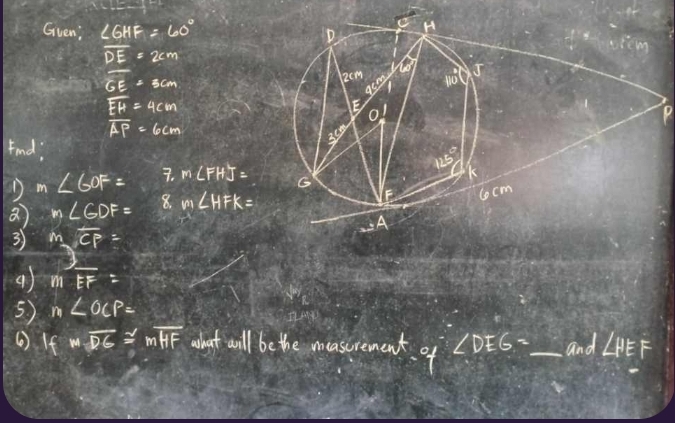 Given; ∠GHF = 60°
DE = 2cm
GE = 3cm
EH = 4cm
AP = 6cm
Find;
1) m ∠GOF =
2) m ∠GDF =
3) m CP =
4) m EF =
5) m ∠OCP =
6) If m DG ≅ mHF what will be the measurement of ∠DEG = __ and ∠HEF
7. m ∠FHJ =
8. m ∠HFK =
D
C
H
2cm
4cm
60°
110°
J
E
O
3cm
P
G
125°
K
F
6cm
A